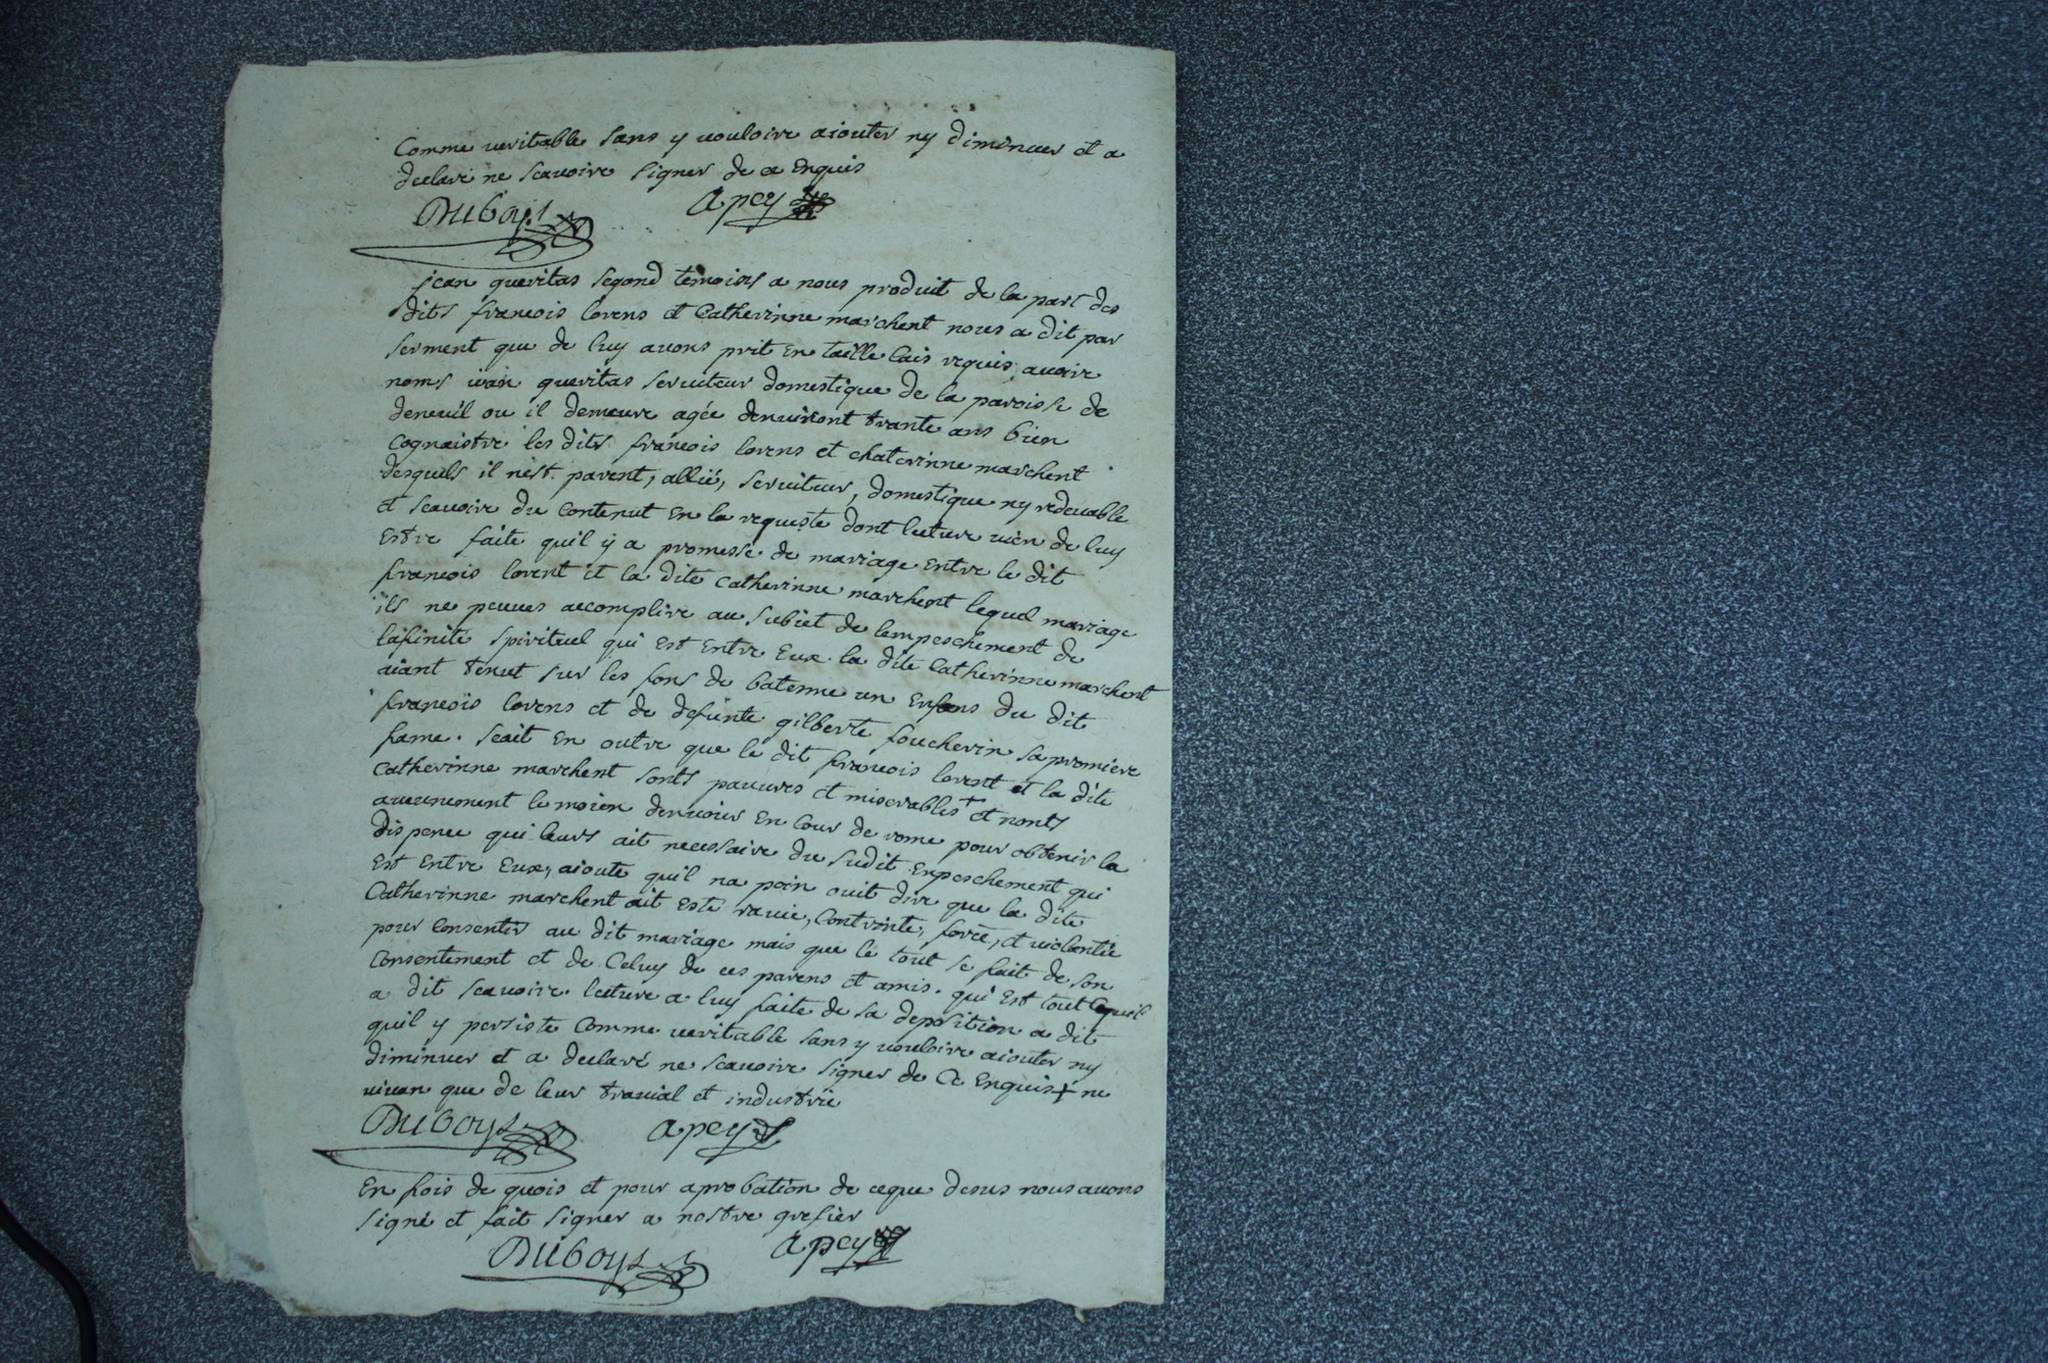 Comme veritable sans y vouloire aiouter ny diminuer et a
declaré ne scavoire signer de ce enquis
Duboys Apey
jean queritas segond temoins a nous produit de la part des
dits francois lorens et Catherinne marchent nous a dit par
serment que de luy avons prit en taille cais requis avoire
noms jean queritas serviteur domestique de la paroisse de
deneuil ou il demeure agée denviront trante ans bien
cognaistre les dits francois lorens et chaterinne marchent
desquels il nest parent, allié, serviteur, domestique ny redevable
et scavoire du contenut en la requeste dont lecture vien de luy
estre faite quil y a promesse de mariage entre le dit
francois lorent et la dite catherinne marchent lequel mariage
ils ne peuves accomplire au subiet de lempeschement de
lafinite spirituel qui est entre eux la dite Catherinne marchent
aiant tenut sur les fons de bateme un enfans du dit
francois lorens et de defunte gilberte foucherin sa premiere
fame. scait en outre que le dit francois lorent et la dite
catherinne marchent sonts pauvres et miserables + et nonts
aucunement le moien denvoier en cour de rome pour obtenir la
dispence qui leurs ait necessaire du sudit enpeschement qui
est entre eux, aioute quil na poin ouit dire que la dite
Catherinne marchent ait esté ravie, contrinte, forcé, et violentée
pour consentir au dit mariage mais que le tout se fait de son
consentement et de celuy de ces parens et amis. qui est tout cequil
a dit scavoire. lecture a luy faite de sa deposition a dit
quil y persiste comme veritable sans y vouloire aiouter ny
diminuer et a declaré ne scavoire signer de ce enquis + ne
vivan que de leur travial et industrie
Duboys Apey
En fois de quois et pour aprobation de ceque desus nous avons
signé et fait signer a nostre grefier
Duboys Apey